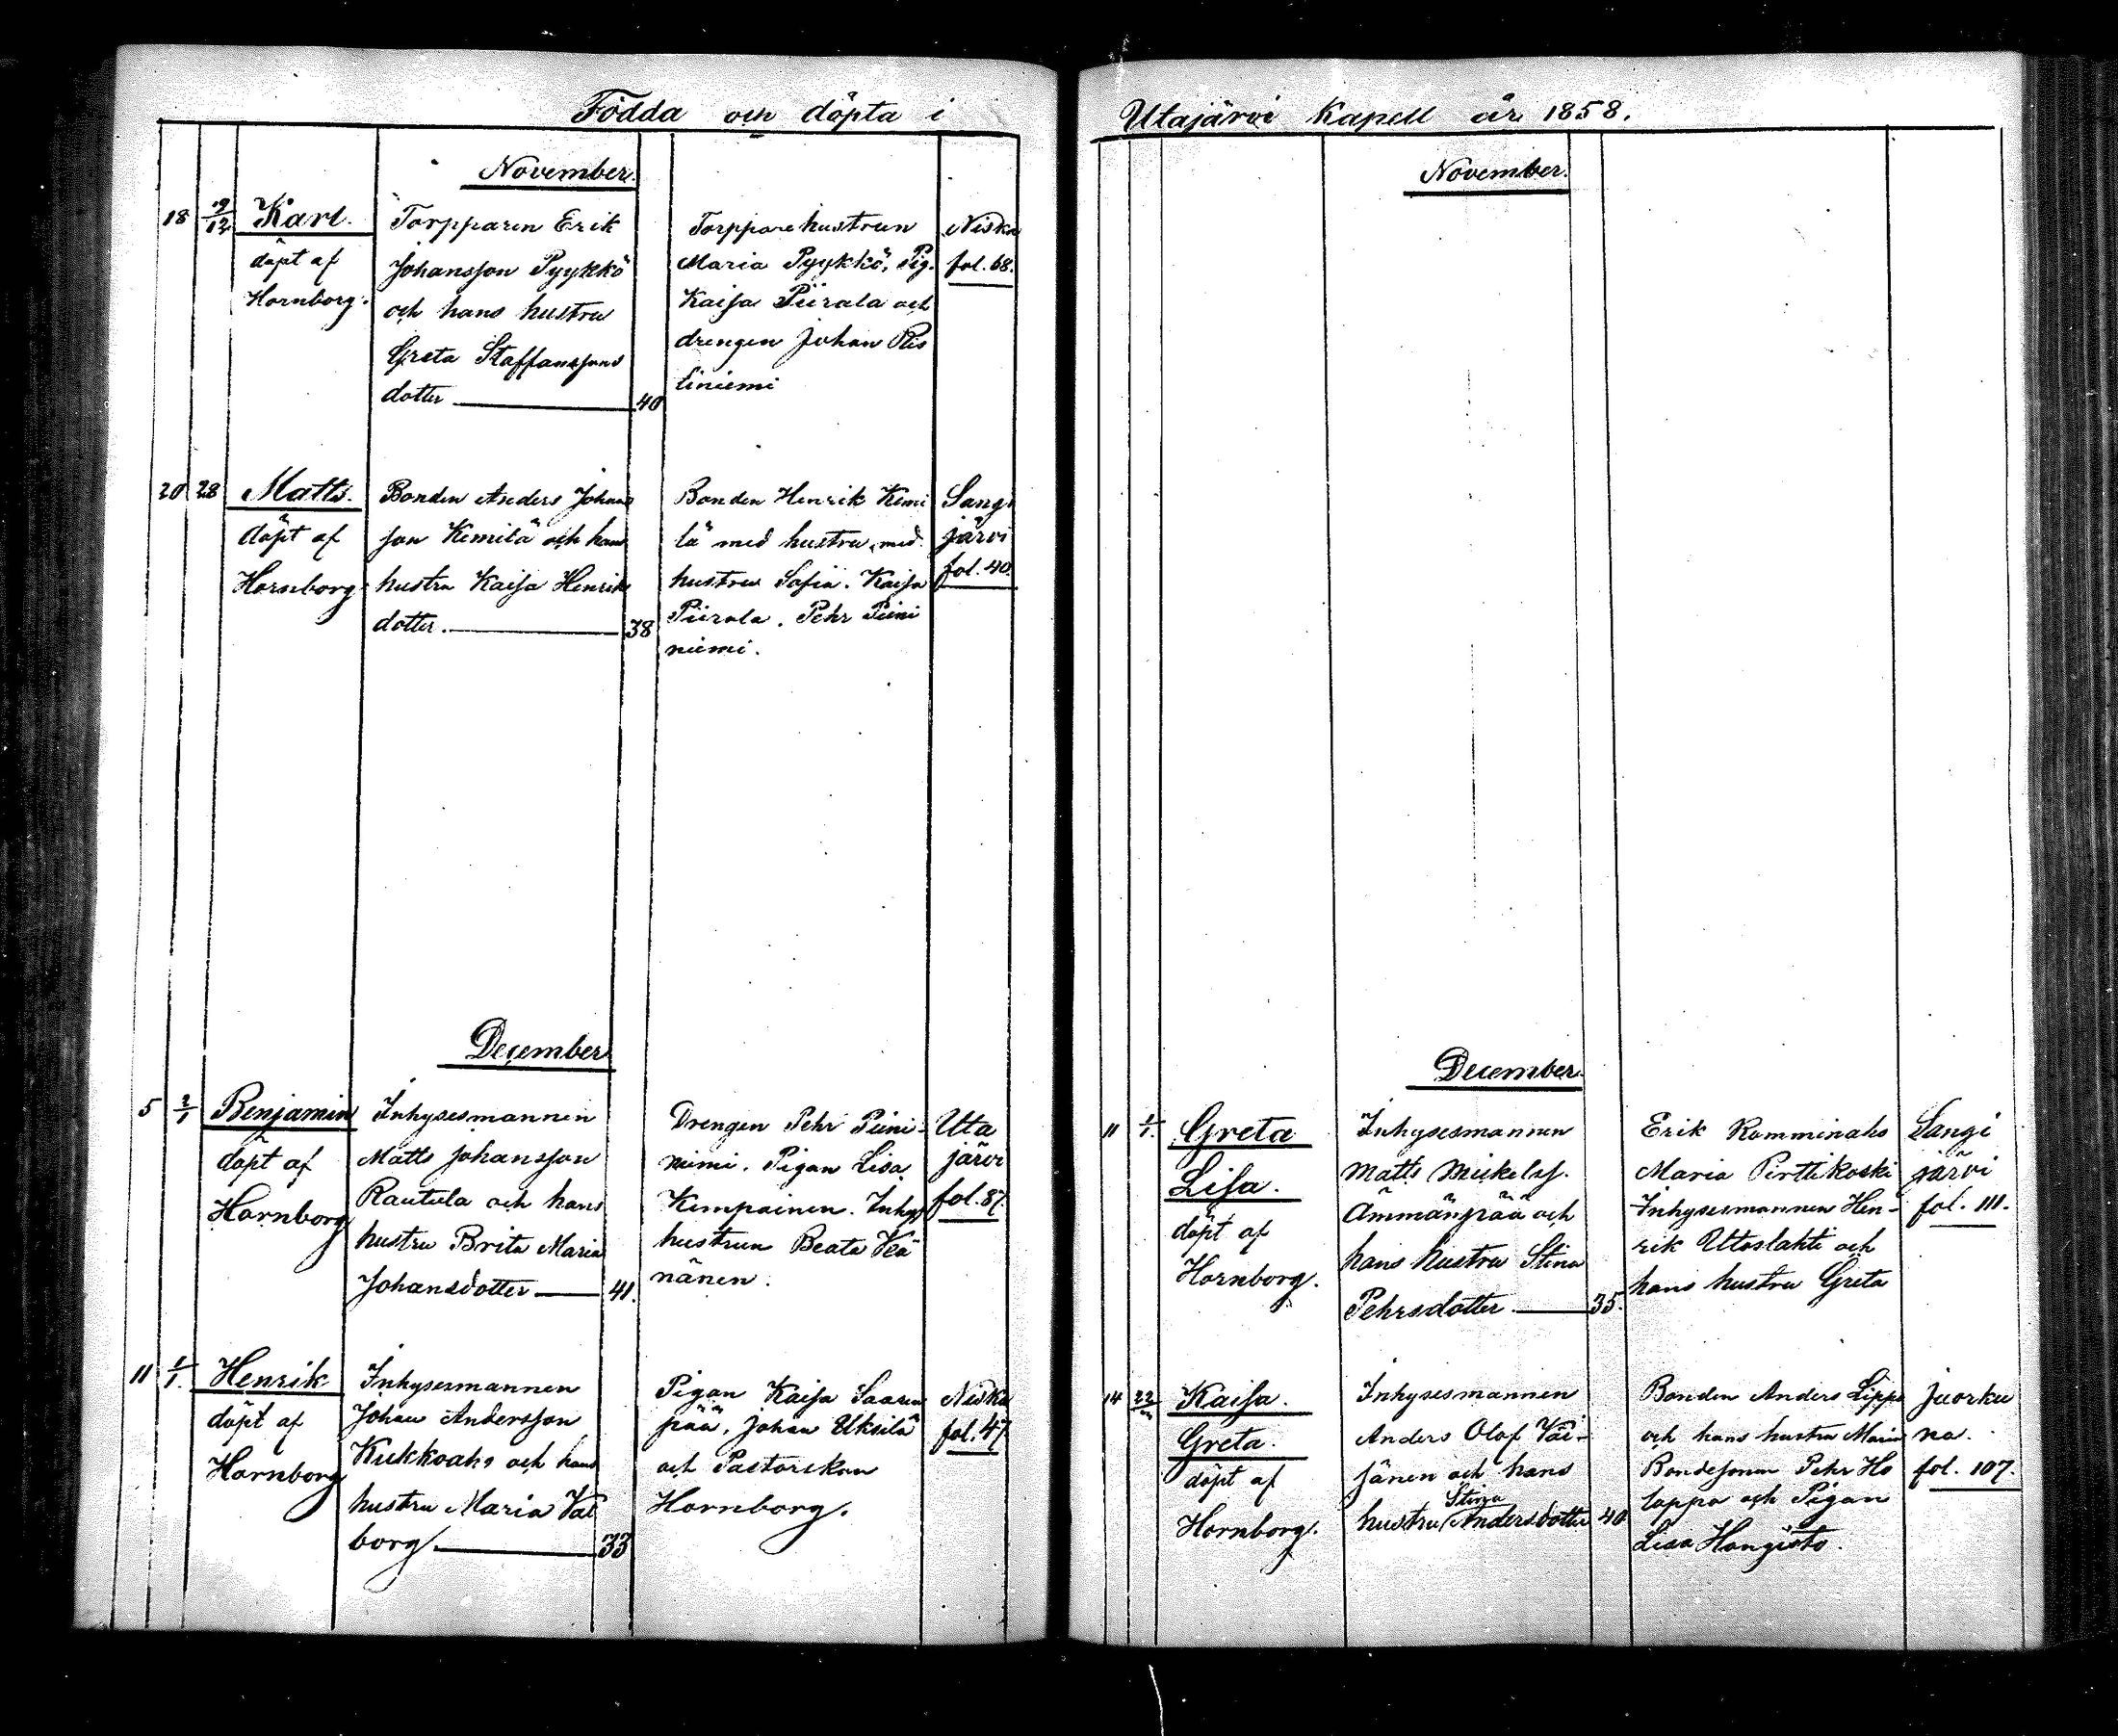 Födda och döpta i
November.
18 19/12 Karl.
döpt af
Hornborg.
Torpparen Erik
Johansson Pyykkö
och hans hustru
Greta Staffanssons
dotter 40
Torppare hustrun
Maria Pyykkö, Pig.
Kaisa Piirala och
drengen Johan
liniemi
Niska
fol. 68.
20 28 Matts.
döpt af
Hornborg
Bonden Anders Johans
son Kemilä och hans
hustru Kaisa Henriks
dotter. 38
Bonden Henrik Kemi
lä med hustru, med
hustru Sofia. Kaisa
Piirala. Pehr Piini
niemi.
Sangi
järvi
fol. 40.
December
5 2/1 Benjamin
döpt af
Hornborg
Inhysesmannen
Matts Johansson
Rautula och hans
hustru Brita Maria
Johansdotter 41.
Drengen Pehr Piini-
niemi. Pigan Lisa
Kempainen. Inhys
hustrun Beata
nänen.
Uta
järvi
fol. 87.
11 1/1. Henrik
döpt af
Hornborg
Inhysesmannen
Johan Andersson
Kukkoaho och hans
hustru Maria Val
borg. 33
Pigan Kaisa Saaren
pää, Johan Ukkila
och Pastorskan
Hornborg.
Niska
fol. 47
Utajärvi Kapell år 1858.
November.
December.
11 1/1. Greta
Lisa.
döpt af
Hornborg.
Inhysesmannen
Matts Mickelss.
Ämmänpää och
hans hustru Stina
Pehrsdotter 35.
Erik Romminaho
Maria Pirttikoski
Inhysesmannen Hen-
rik Utoslahti och
hans hustru Greta
Sangi
järvi
fol. 111.
14 Kaisa.
Greta.
döpt af
Hornborg.
Inhysesmannen
Anders Olof Väi-
sänen och hans
Stina
hustru Andersdotter 40
Bonden Anders Lippo
och hans hustru Maria
Bondesonen Pehr Ho
lappa och Pigan
Lisa Hangisto.
Juorku
na.
fol. 107.